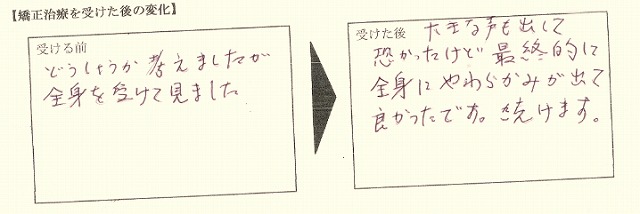 【矯正治療を受けた後の変化】
受ける前
どうしょうか考えましたが
全身を受けて見ました
受けた後
大きな声も出して
恐かったけど最終的に
全身にやわらかみが出て
良かったです。続けます。